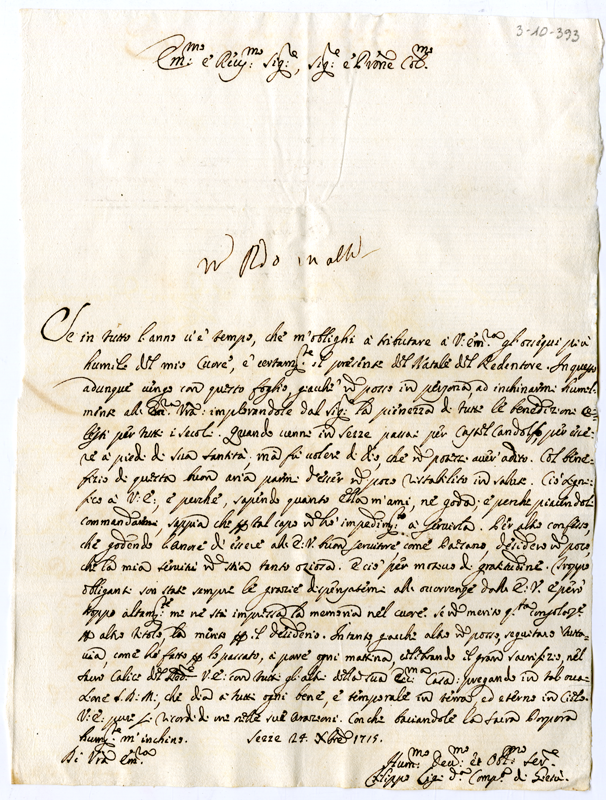 3-10-393
Em:mo e Rev:mo Sig:re, Sig:re e Prone Col:mo
Se in tutto l'anno vi è tempo, che m'oblighi a tributare a V: Em:za gl'ossequi più
humili del mio Cuore, è certam:te il presente del Natale del Redentore. In questo
adunque vengo con questo foglio, giache posso in persona, ad inchinarmi humil-
mente all' Em:za Vra: implorandole dal Sig:re la pienezza di tutte le benedizioni Ce-
lesti per tutti i secoli. Quando venni in Sezze passai per Castel Candolfo per esse-
re a piedi di sua Santità, ma fù volere di Dio che potei aver adito. Col bene-
fizio di questa buon aria parmi d'esser poco ristabilito in salute. Ciò signi-
fico a V: E: e perche, sapendo quanto Ella m'ami, ne goda: e perche piacendole
commandarmi, sappia che tal capo hò impedim:to a servirla. Per altro confesso,
che godendo l'onore di essere all' E: V: buon servitore come desidero poco,
che la mia servitù stia tanto oziosa. E ciò per motivo di gratitudine. Troppo
obliganti son state sempre le grazie dispensatemi alle occorrenze dalla E: V: e però
troppo altam:te me ne stà impressa la memoria nel cuore. Se merito
altro titolo, la merito il desiderio. Intanto giache altro posso, seguitarò tutta-
via, come hò fatto il passato, a porre ogni mattina celebrando il gran Sacrifizio, nel
Calice V: E: con tutti gl'altri della sua Ecc:ma Casa: pregando in tal occa-
sione S. D: M: che dia a tutti ogni bene, e temporale in terra, ed eterno in Cielo.
V: E: pure si ricordi di me nelle sue orazioni. Con che baciandole la Sacra Porpora
hum:te m'inchino. Sezze 24. Xbre 1715.
Di Vra Em:za
Hum:mo Dev:mo et Obl:mo Ser:re
Filippo